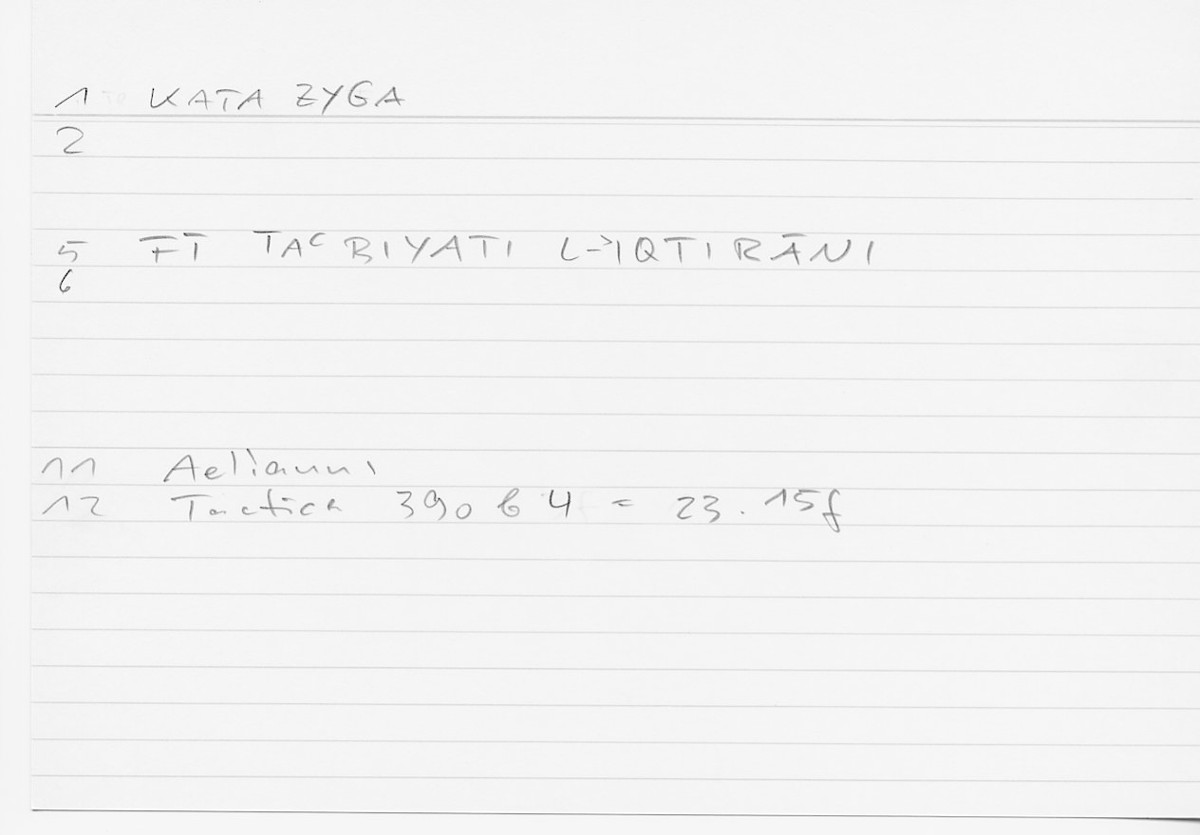 1 KATA ZYGA
2
5 FĪ TAᶜBIYATI L-ʾIQTIRĀNI
6
11 Aelianus
12 Tactica 390 b 4 = 23.15f